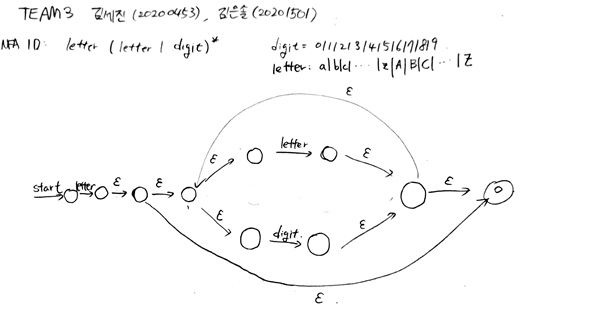 TEAM3 김세진 (20200453), 김은솔 (20201501)
NFA ID: letter (letter | digit)*
digit = 0/1/2/3/4/5/6/7/8/9
letter: a|b|c| ... |z|A|B|C| ... |Z
ε
letter
ε ε
start letter ε ε ε
ε ε
digit.
ε